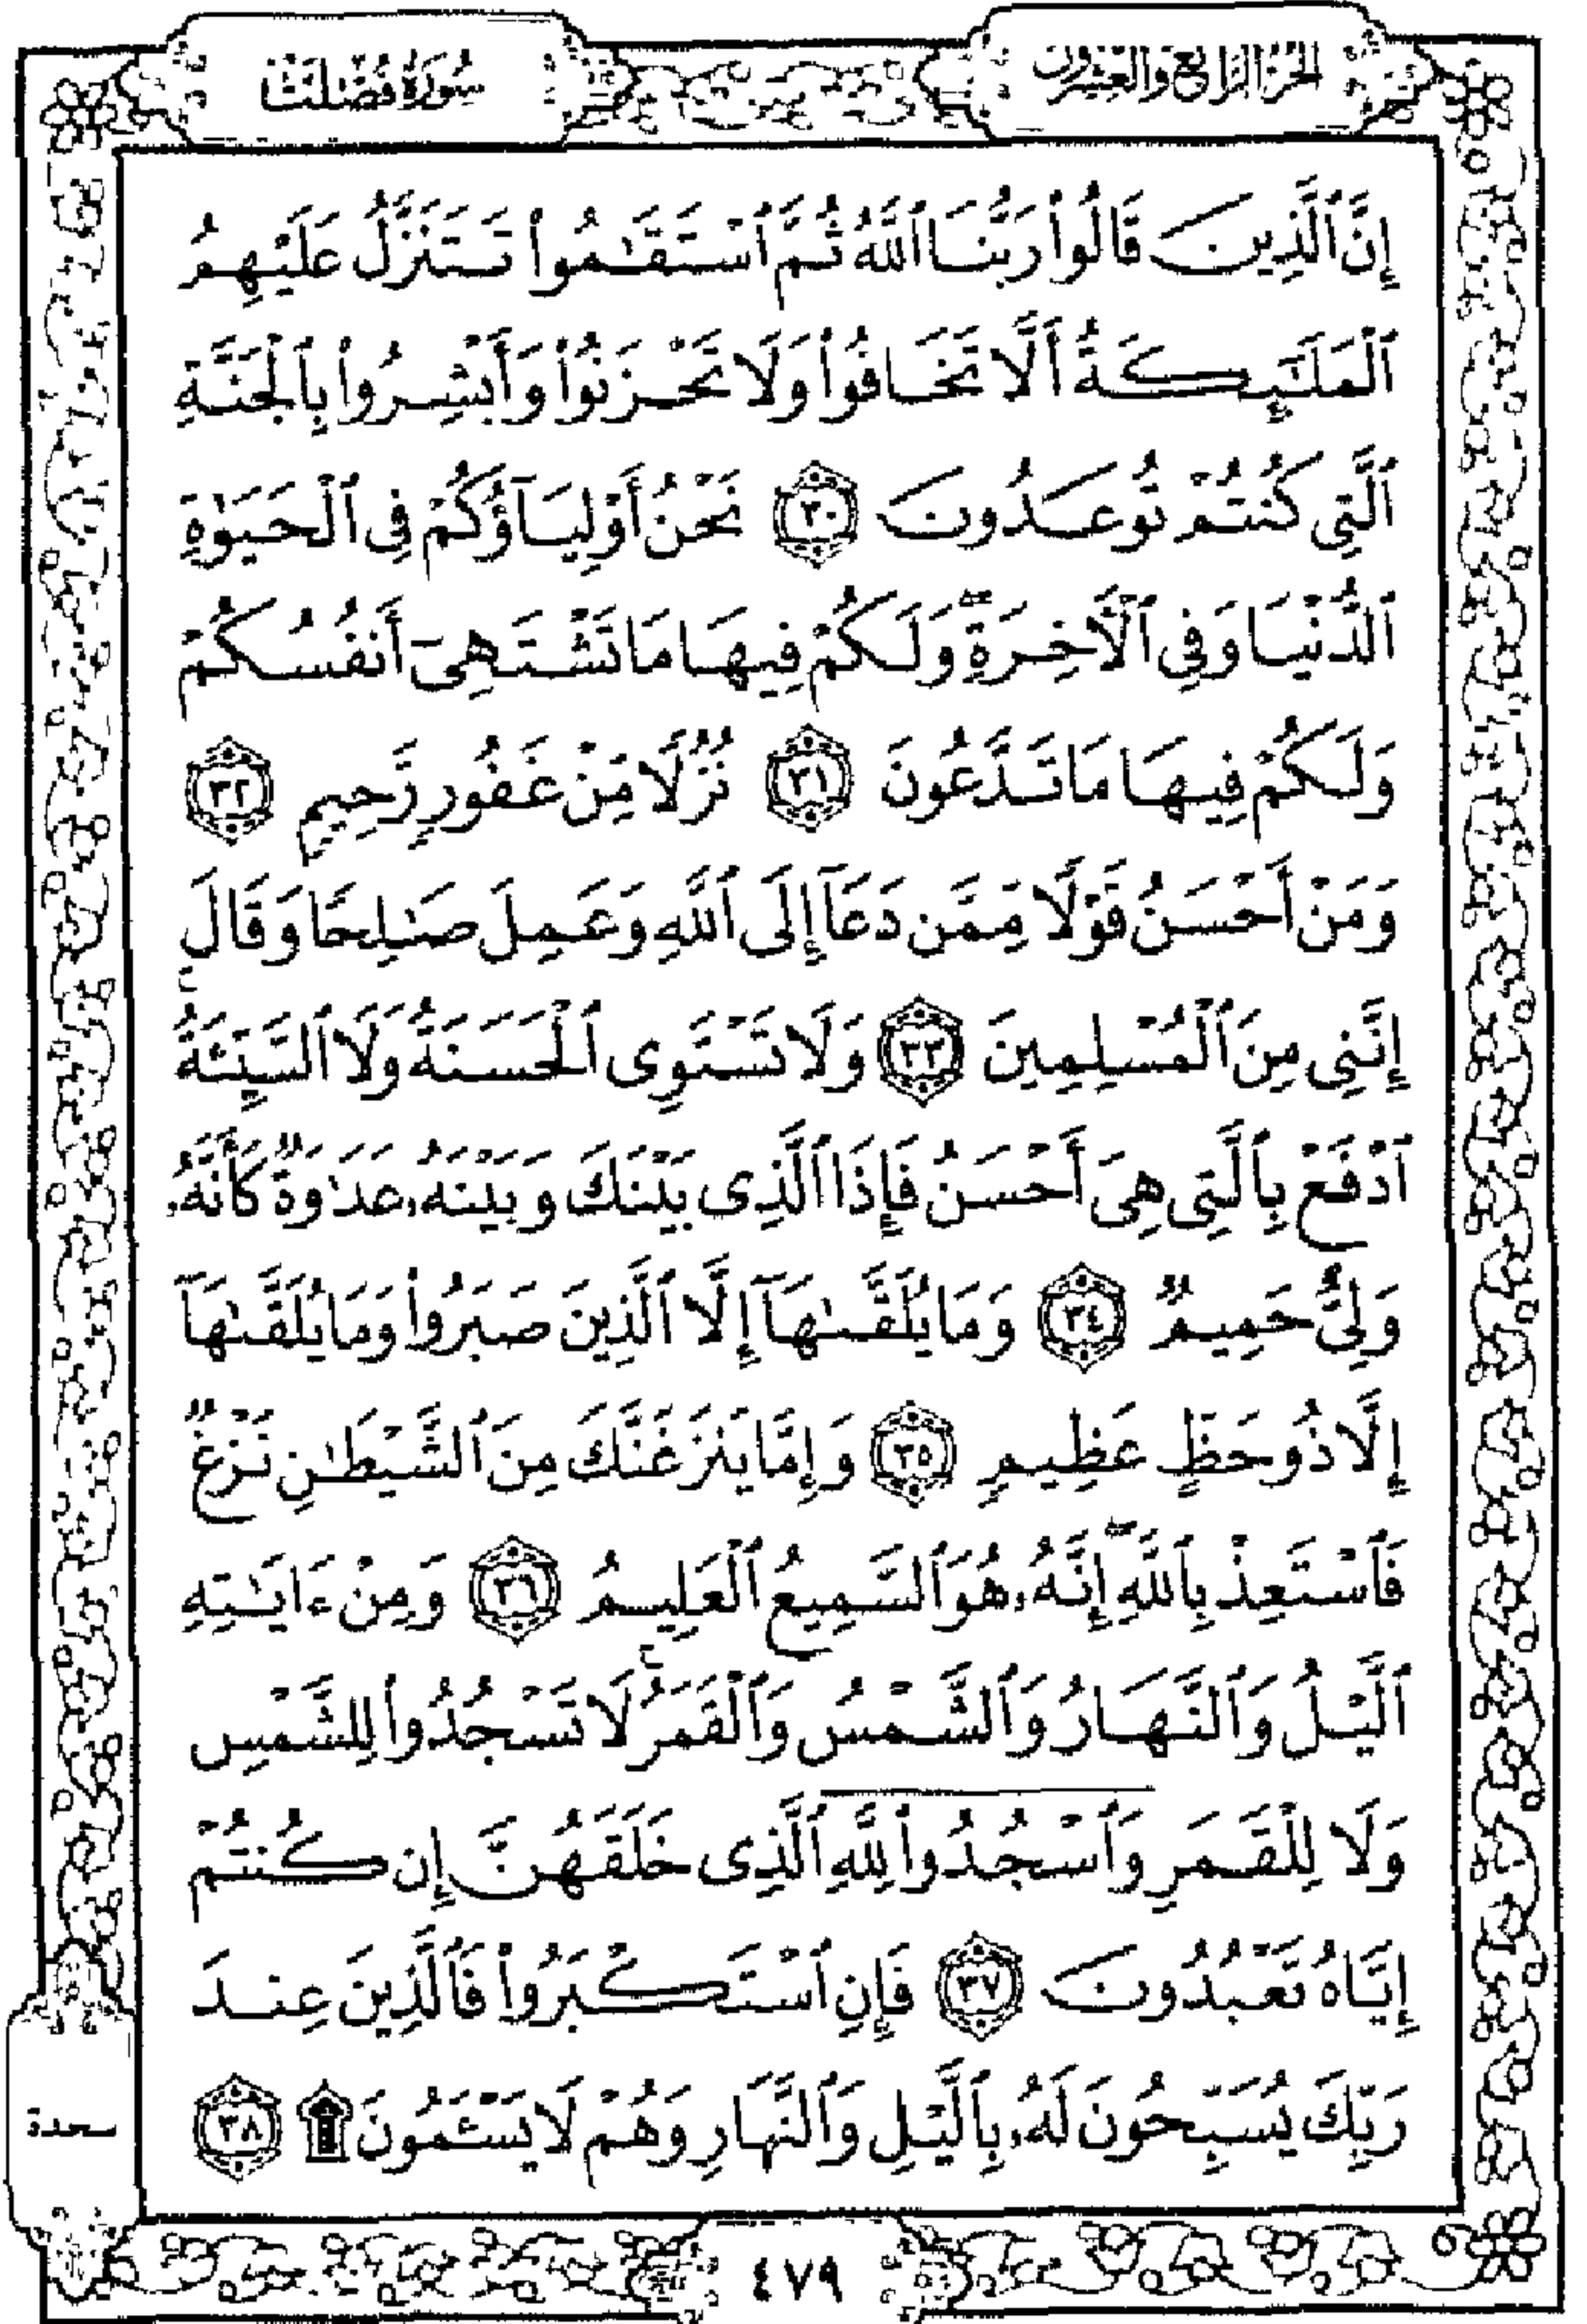 الجزء الرابع والعشرون
سُورَةُ فُصِّلَتْ
إِنَّ ٱلَّذِينَ قَالُوا۟ رَبُّنَا ٱللَّهُ ثُمَّ ٱسْتَقَٰمُوا۟ تَتَنَزَّلُ عَلَيْهِمُ
ٱلْمَلَٰٓئِكَةُ أَلَّا تَخَافُوا۟ وَلَا تَحْزَنُوا۟ وَأَبْشِرُوا۟ بِٱلْجَنَّةِ
ٱلَّتِى كُنتُمْ تُوعَدُونَ ٣٠ نَحْنُ أَوْلِيَآؤُكُمْ فِى ٱلْحَيَوٰةِ
ٱلدُّنْيَا وَفِى ٱلْءَاخِرَةِ ۖ وَلَكُمْ فِيهَا مَا تَشْتَهِىٓ أَنفُسُكُمْ
وَلَكُمْ فِيهَا مَا تَدَّعُونَ ٣١ نُزُلًا مِّنْ غَفُورٍ رَّحِيمٍ ٣٢
وَمَنْ أَحْسَنُ قَوْلًا مِّمَّن دَعَآ إِلَى ٱللَّهِ وَعَمِلَ صَٰلِحًا وَقَالَ
إِنَّنِى مِنَ ٱلْمُسْلِمِينَ ٣٣ وَلَا تَسْتَوِى ٱلْحَسَنَةُ وَلَا ٱلسَّيِّئَةُ ۚ
ٱدْفَعْ بِٱلَّتِى هِىَ أَحْسَنُ فَإِذَا ٱلَّذِى بَيْنَكَ وَبَيْنَهُۥ عَدَٰوَةٌ كَأَنَّهُۥ
وَلِىٌّ حَمِيمٌ ٣٤ وَمَا يُلَقَّىٰهَآ إِلَّا ٱلَّذِينَ صَبَرُوا۟ وَمَا يُلَقَّىٰهَآ
إِلَّا ذُو حَظٍّ عَظِيمٍ ٣٥ وَإِمَّا يَنزَغَنَّكَ مِنَ ٱلشَّيْطَٰنِ نَزْغٌ
فَٱسْتَعِذْ بِٱللَّهِ ۖ إِنَّهُۥ هُوَ ٱلسَّمِيعُ ٱلْعَلِيمُ ٣٦ وَمِنْ ءَايَٰتِهِ
ٱلَّيْلُ وَٱلنَّهَارُ وَٱلشَّمْسُ وَٱلْقَمَرُ ۚ لَا تَسْجُدُوا۟ لِلشَّمْسِ
وَلَا لِلْقَمَرِ وَٱسْجُدُوا۟ لِلَّهِ ٱلَّذِى خَلَقَهُنَّ إِن كُنتُمْ
إِيَّاهُ تَعْبُدُونَ ٣٧ فَإِنِ ٱسْتَكْبَرُوا۟ فَٱلَّذِينَ عِندَ
رَبِّكَ يُسَبِّحُونَ لَهُۥ بِٱلَّيْلِ وَٱلنَّهَارِ وَهُمْ لَا يَسْـَٔمُونَ ۩ ٣٨
سجدة
٤٧٩